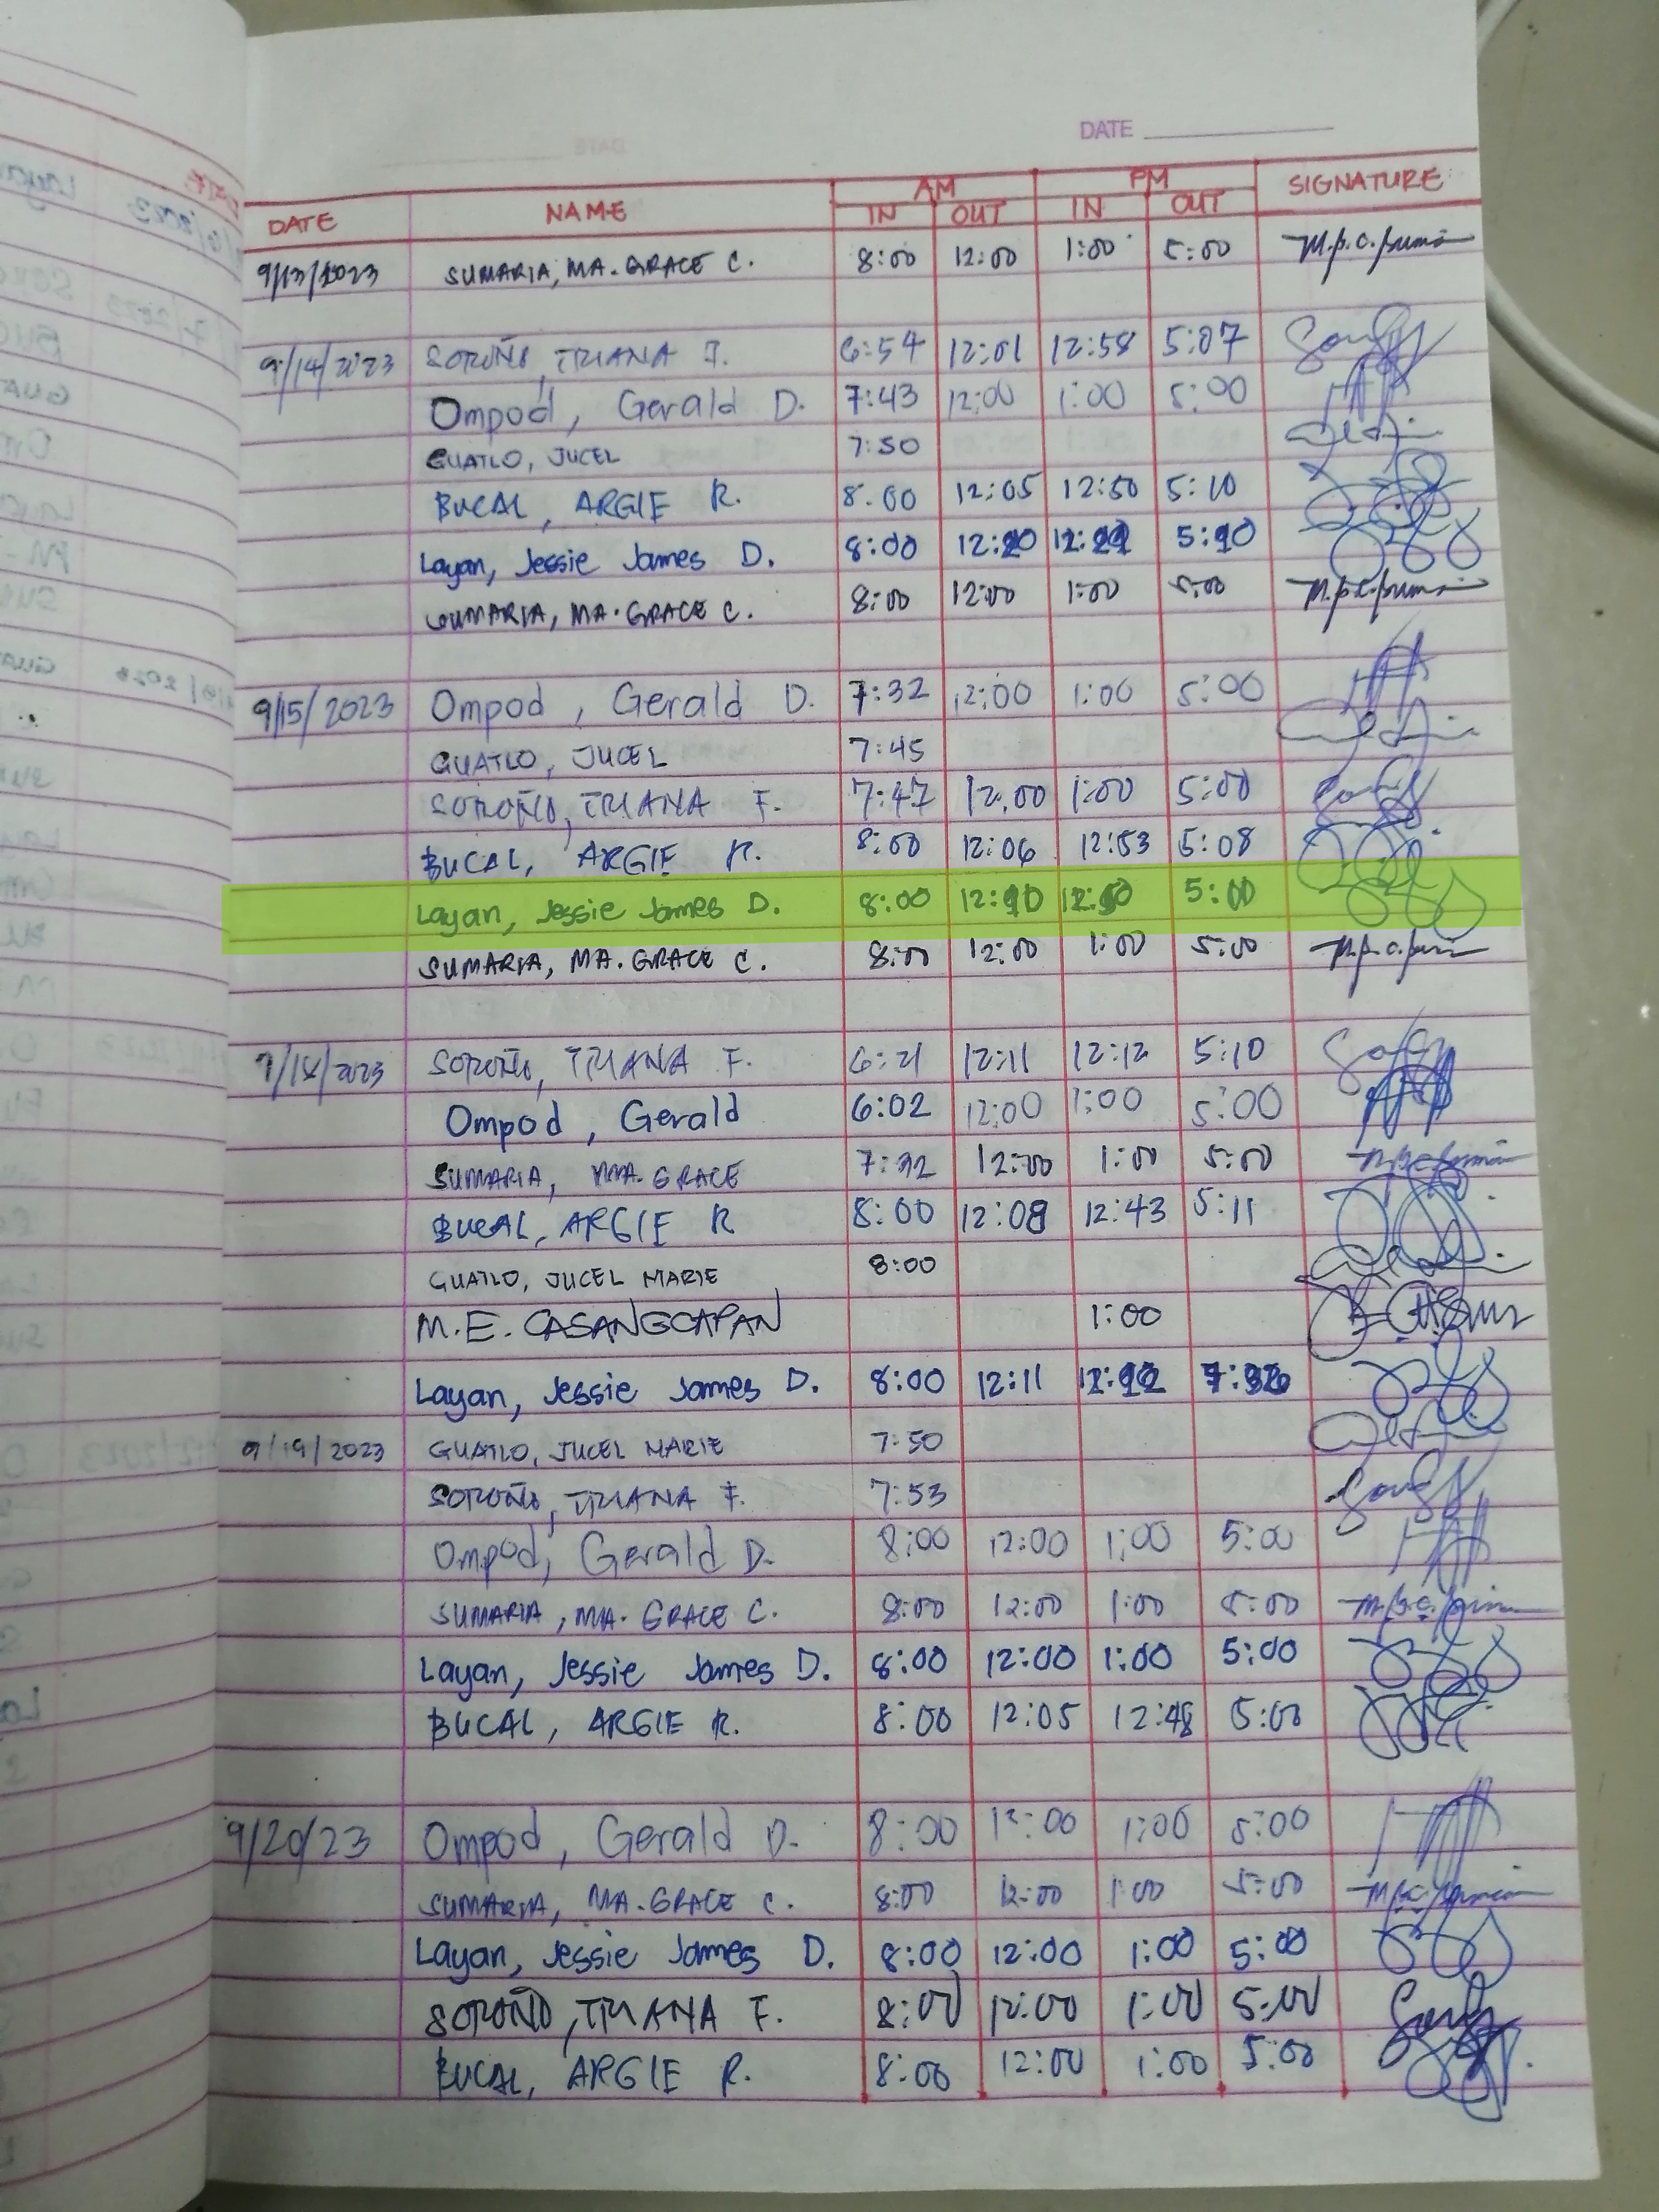 DATE
AM PM SIGNATURE
DATE NAME IN OUT IN OUT
9/13/2023 SUMARIA, MA. GRACE C. 8:00 12:00 1:00 5:00
9/14/2023 SOROÑO, TRIANA F. 6:54 12:01 12:58 5:07
Ompod, Gerald D. 7:43 12:00 1:00 5:00
GUATLO, JUCEL 7:50
BUCAL, ARGIE R. 8:00 12:05 12:50 5:10
Layan, Jessie James D. 8:00 5:10
SUMARIA, MA. GRACE C. 8:00 12:00 1:00 5:00
9/15/2023 Ompod, Gerald D. 7:32 12:00 1:00 5:00
GUATLO, JUCEL 7:45
SOROÑO, TRIANA F. 7:47 12:00 1:00 5:00
BUCAL, ARGIE R. 8:00 12:06 12:53 5:08
Layan, Jessie James D. 8:00 12:10 12:50 5:00
SUMARIA, MA. GRACE C. 8:00 12:00 1:00 5:00
9/18/2023 SOROÑO, TRIANA F. 6:21 12:11 12:12 5:10
Ompod, Gerald 6:02 12:00 1:00 5:00
SUMARIA, MA. GRACE 7:32 12:00 1:00 5:00
BUCAL, ARGIE R 8:00 12:08 12:43 5:11
GUATLO, JUCEL MARIE 8:00
M.E. CASANGCAPAN 1:00
Layan, Jessie James D. 8:00 12:11
9/19/2023 GUATLO, JUCEL MARIE 7:50
SOROÑO, TRIANA F. 7:53
Ompod, Gerald D. 8:00 12:00 1:00 5:00
SUMARIA, MA. GRACE C. 8:00 12:00 1:00 5:00
Layan, Jessie James D. 8:00 12:00 1:00 5:00
BUCAL, ARGIE R. 8:00 12:05 12:48 5:00
9/20/23 Ompod, Gerald D. 8:00 12:00 1:00 5:00
SUMARIA, MA. GRACE C. 8:00 12:00 1:00 5:00
Layan, Jessie James D. 8:00 12:00 1:00 5:00
SOROÑO, TRIANA F. 8:00 12:00 1:00 5:00
BUCAL, ARGIE R. 8:00 12:00 1:00 5:00